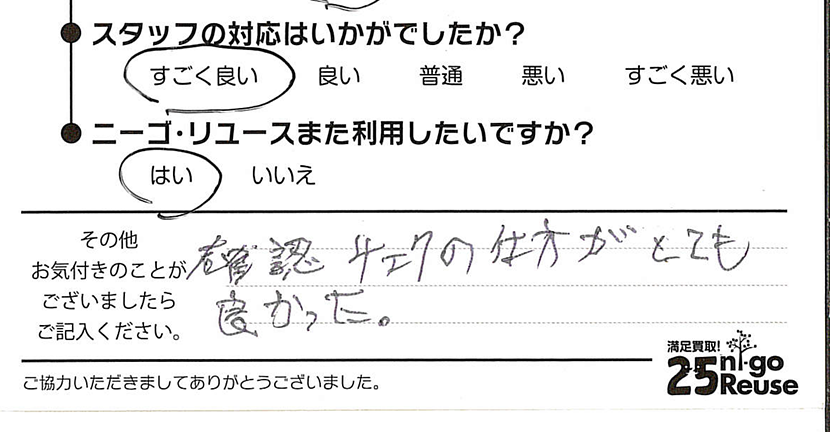 スタッフの対応はいかがでしたか?
すごく良い 良い 普通 悪い すごく悪い
ニーゴ・リユースまた利用したいですか?
はい いいえ
その他
お気付きのことが
ございましたら
ご記入ください。
確認チェクの仕方がとても
良かった。
ご協力いただきましてありがとうございました。
満足買取!
25 ni-go
Reuse